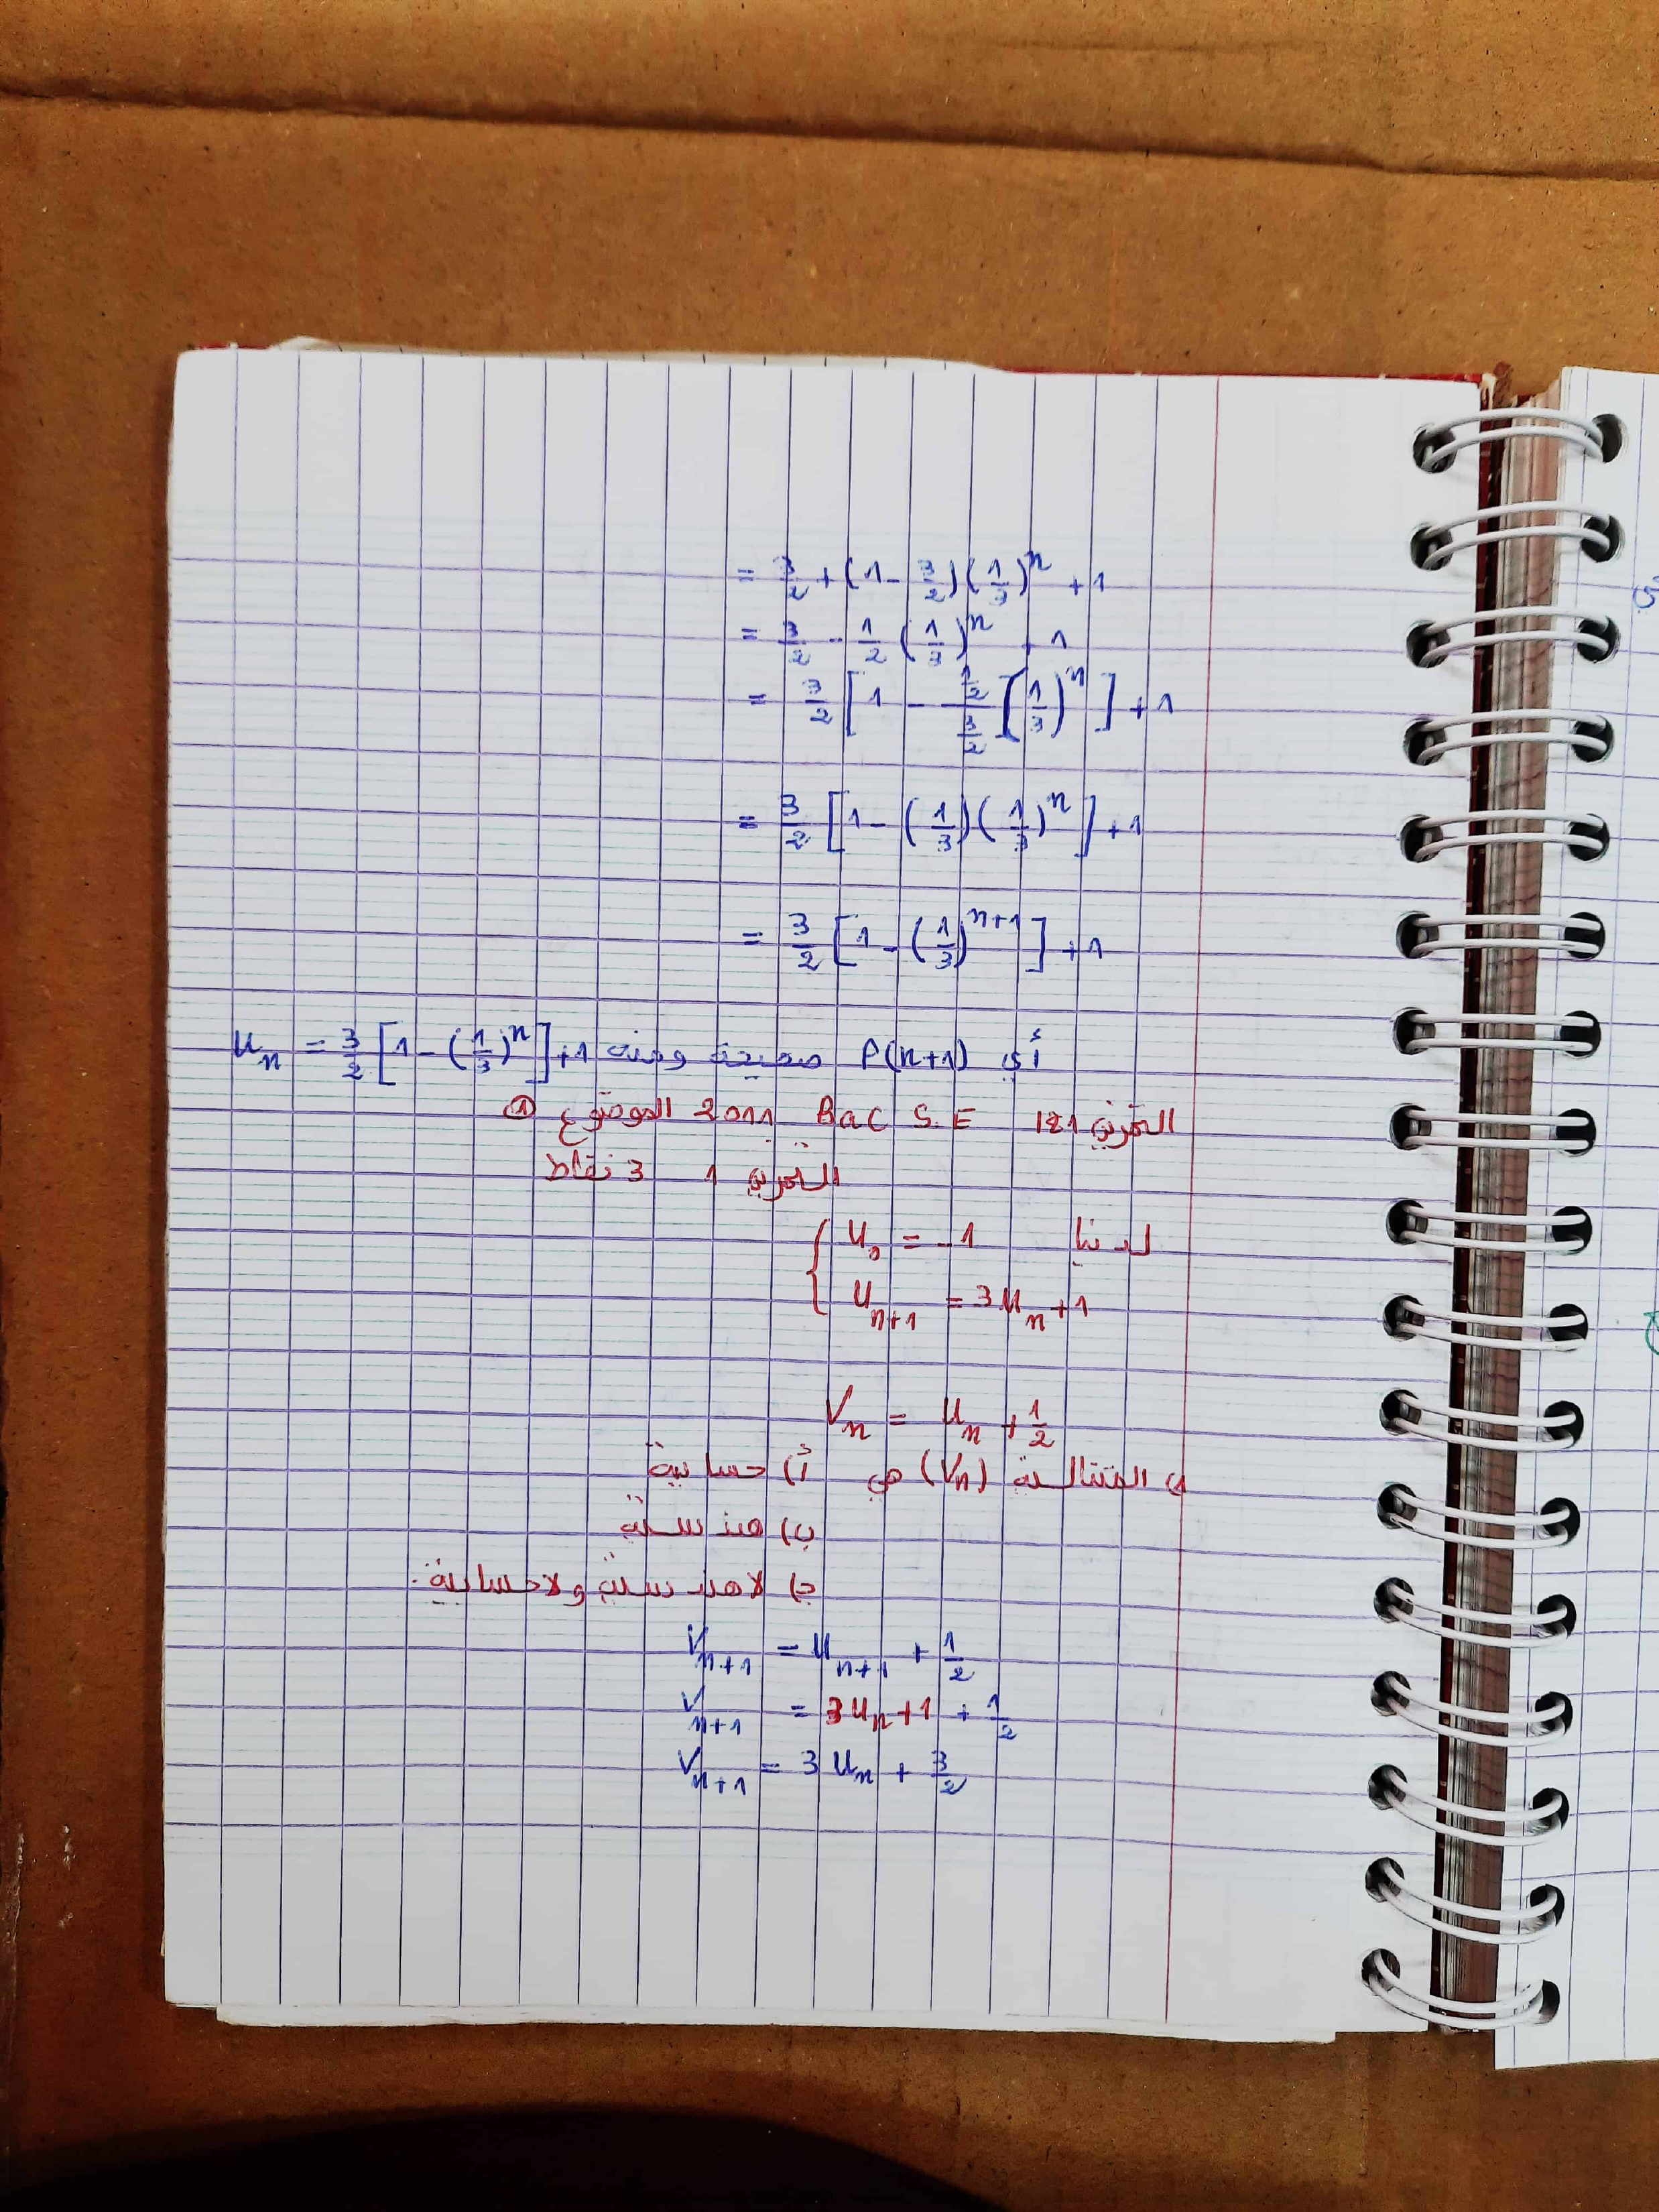 = 3/2 + (1 - 3/2)(1/3)^n + 1
= 3/2 - 1/2 (1/3)^n + 1
= 3/2 [1 - (1/2)/(3/2) (1/3)^n] + 1
= 3/2 [1 - (1/3)(1/3)^n] + 1
= 3/2 [1 - (1/3)^{n+1}] + 1
أي P(n+1) صحيحة ومنه u_n = 3/2 [1 - (1/3)^n] + 1
التمرين 121 Bac S.E 2011 الموضوع ①
التمرين 1 3 نقاط
لدينا { u_0 = -1
u_{n+1} = 3u_n + 1
V_n = u_n + 1/2
1) المتتالية (V_n) هي أ) حسابية
ب) هندسية
ج) لا هندسية ولا حسابية.
V_{n+1} = u_{n+1} + 1/2
V_{n+1} = 3u_n + 1 + 1/2
V_{n+1} = 3u_n + 3/2